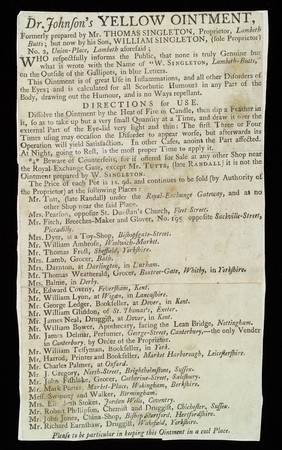 Dr. Johnson's YELLOW OINTMENT,
Formerly prepared by Mr. THOMAS SINGLETON, Proprietor, Lambeth
Butts; but now by his Son, WILLIAM SINGLETON, (sole Proprietor)
No. 2, Union-Place, Lambeth aforesaid;
WHO respectfully informs the Public, that none is truly Genuine but
what is wrote with the Name of "W. SINGLETON, Lambeth-Butts,"
on the Outside of the Gallipots, in blue Letters.
This Ointment is of great Use in Inflammations, and all other Disorders of
the Eyes; and is calculated for all Scorbutic Humours in any Part of the
Body, drawing out the Humour, and is no Ways repellant.
DIRECTIONS for USE.
Dissolve the Ointment by the Heat of Fire or Candle, then dip a Feather in
it, so as to take up but a very small Quantity at a Time, and draw it over the
external Part of the Eye-lid very light and thin: The first Three or Four
Times using may occasion the Disorder to appear worse, but afterwards its
Operation will yield Satisfaction. In other Cases, anoint the Part affected.
At Night, going to Rest, is the most proper Time to apply it.
*⁎* Beware of Counterfeits, for if offered for Sale at any other Shop near
the Royal-Exchange Gate, except Mr. TUTTS, (late RANDALL) it is not the
Ointment prepared by W. SINGLETON.
The Price of each Pot is 1s. 9d. and continues to be sold (by Authority of
the Proprietor) at the following Places:
Mr. Tutt, (late Randall) under the Royal-Exchange Gateway, and at no
other Shop near the said Place.
Mrs. Pearson, opposite St. Dunstan's Church, Fleet-Street.
Mr. Fitch, Breeches-Maker and Glover, No. 195 opposite Sackville-Street,
Piccadilly.
Mrs. Dyer, at a Toy-Shop, Bishopsgate-Street.
Mr. William Ambrose, Woolwich-Market.
Mr. Thomas Frost, Sheffield, Yorkshire.
Mr. Lamb, Grocer, Bath.
Mrs. Darnton, at Darlington, in Durham.
Mr. Thomas Weatherald, Grocer, Baxter-Gate, Whitby, in Yorkshire.
Mrs. Balme, in Derby.
Mr. Edward Coveny, Feversham, Kent.
Mr. William Lyon, at Wigan, in Lancashire.
Mr. George Ledger, Bookseller, at Dover, in Kent.
Mr. William Gliddon, of St. Thomas's, Exeter.
Mr. James Neal, Druggist, at Dover, in Kent.
Mr. William Bower, Apothecary, facing the Lean Bridge, Nottingham.
Mr. James Delmar, Perfumer, George-Street, Canterbury,—the only Vender
in Canterbury, by Order of the Proprietor.
Mr. William Tessyman, Bookseller, in York.
Mr. Harrod, Printer and Bookseller, Market Harborough, Leicestershire.
Mr. Charles Palmer, at Oxford.
Mr. J. Gregory, North-Street, Brighthelmstone, Sussex.
Mr. John Fishlake, Grocer, Catherine-Street, Salisbury.
Mr. Mark Porter, Market-Place, Wokingham, Berkshire.
Mess. Swinney and Walker, Birmingham.
Mrs. Elizabeth Stokes, Jordan Wells, Coventry.
Mr. Robert Phillipson, Chemist and Druggist, Chichester, Sussex.
Mr. John Jones, China-Shop, Bishop Stortford, Hertfordshire.
Mr. Richard Earnshaw, Druggist, Wakefield, Yorkshire.
Please to be particular in keeping this Ointment in a cool Place.